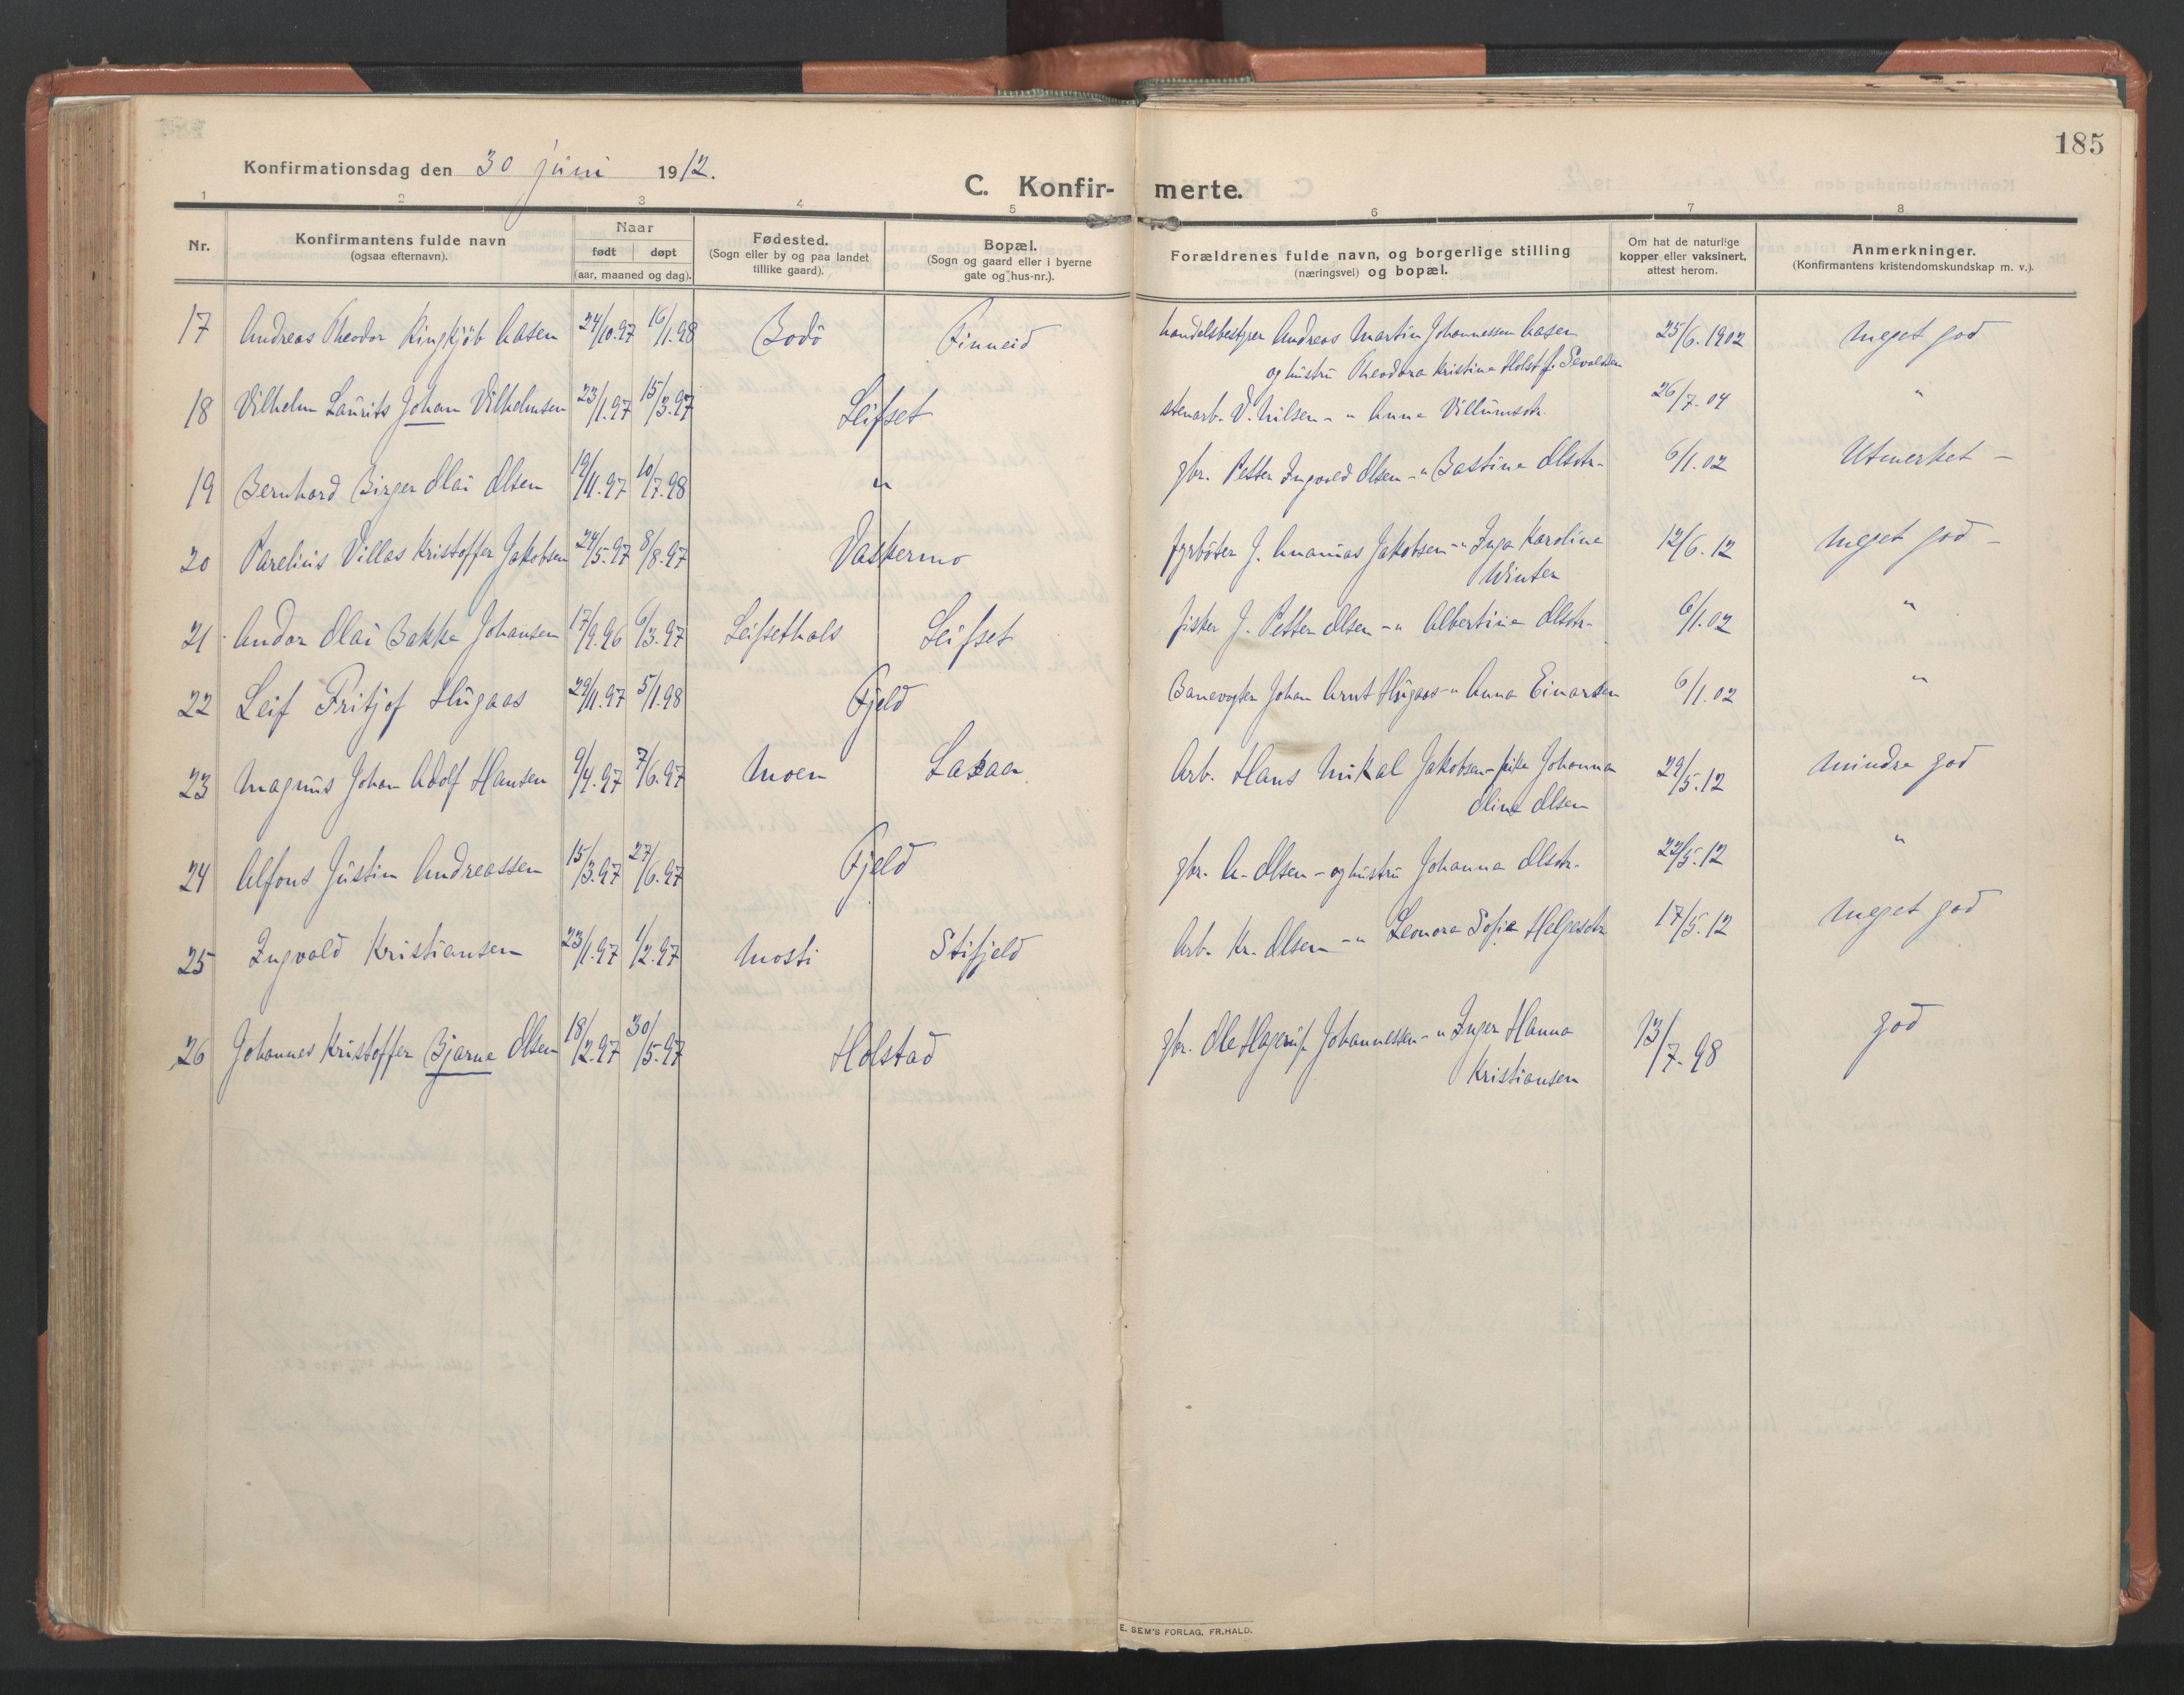 185
Konfirmationsdag den 30 juni 1912.
C. Konfir- merte.
1 2 3 4 5 6 7 8
Nr.
Konfirmantens fulde navn
(ogsaa efternavn).
Naar
født døpt
(aar, maaned og dag).
Fødested.
(Sogn eller by og paa landet
tillike gaard).
Bopæl.
(Sogn og gaard eller i byerne
gate og hus-nr.).
Forældrenes fulde navn, og borgerlige stilling
(næringsvei) og bopæl.
Om hat de naturlige
kopper eller vaksinert,
attest herom.
Anmerkninger.
(Konfirmantens kristendomskundskap m. v.).
17 Andreas Theodor Ringkjöb Aasen 24/10.97 16/1.98 Bodö Finneid handelsbestyrer Andreas Martin Johannessen Aasen 25/6.1902 Meget god
og hustru Theodora Kristine Holst f. Sevaldsen
18 Vilhelm Laurits Johan Vilhelmsen 23/1.97 15/3.97 Leifset stenarb. V. Nilsen - " Anna Villumsdtr. 26/7.04 "
19 Bernhard Birger Olai Olsen 19/11.97 10/7.98 " gbr. Petter Ingvald Olsen - " Bastine Olsdtr. 6/1.02 Utmerket -
20 Parelius Villas Kristoffer Jakobsen 24/5.97 8/8.97 Vaskermo fyrböter J. Ananias Jakobsen - " Inga Karoline 12/6.12 Meget god -
Winter
21 Andor Olai Bakke Johansen 17/9.96 6/3.97 Leifsethals Leifset fisker J. Petter Olsen - " Albertine Olsdtr. 6/1.02 "
22 Leif Fritjof Hugaas 29/11.97 5/1.98 Fjeld Banevogter Johan Arnt Hugaas - " Anna Einarsen 6/1.02 "
23 Magnus Johan Adolf Hansen 9/4.97 7/6.97 Moen Laxaa Arb. Hans Mikal Jakobsen - pike Johanna 29/5.12 Mindre god
Oline Olsen
24 Alfons Justin Andreassen 15/3.97 27/6.97 Fjeld gbr. A. Olsen - og hustru Johanna Olsdtr. 22/5.12 "
25 Ingvald Kristiansen 23/1.97 1/2.97 Mosti Stifjeld Arb. Kr. Olsen - " Leonora Sofie Helgesdtr 17/5.12 Meget god
26 Johannes Kristoffer Bjarne Olsen 18/2.97 30/5.97 Holstad gbr. Ole Hagerup Johannessen - " Inger Hanna 13/7.98 god
Kristiansen
E. SEM'S FORLAG, FR.HALD.